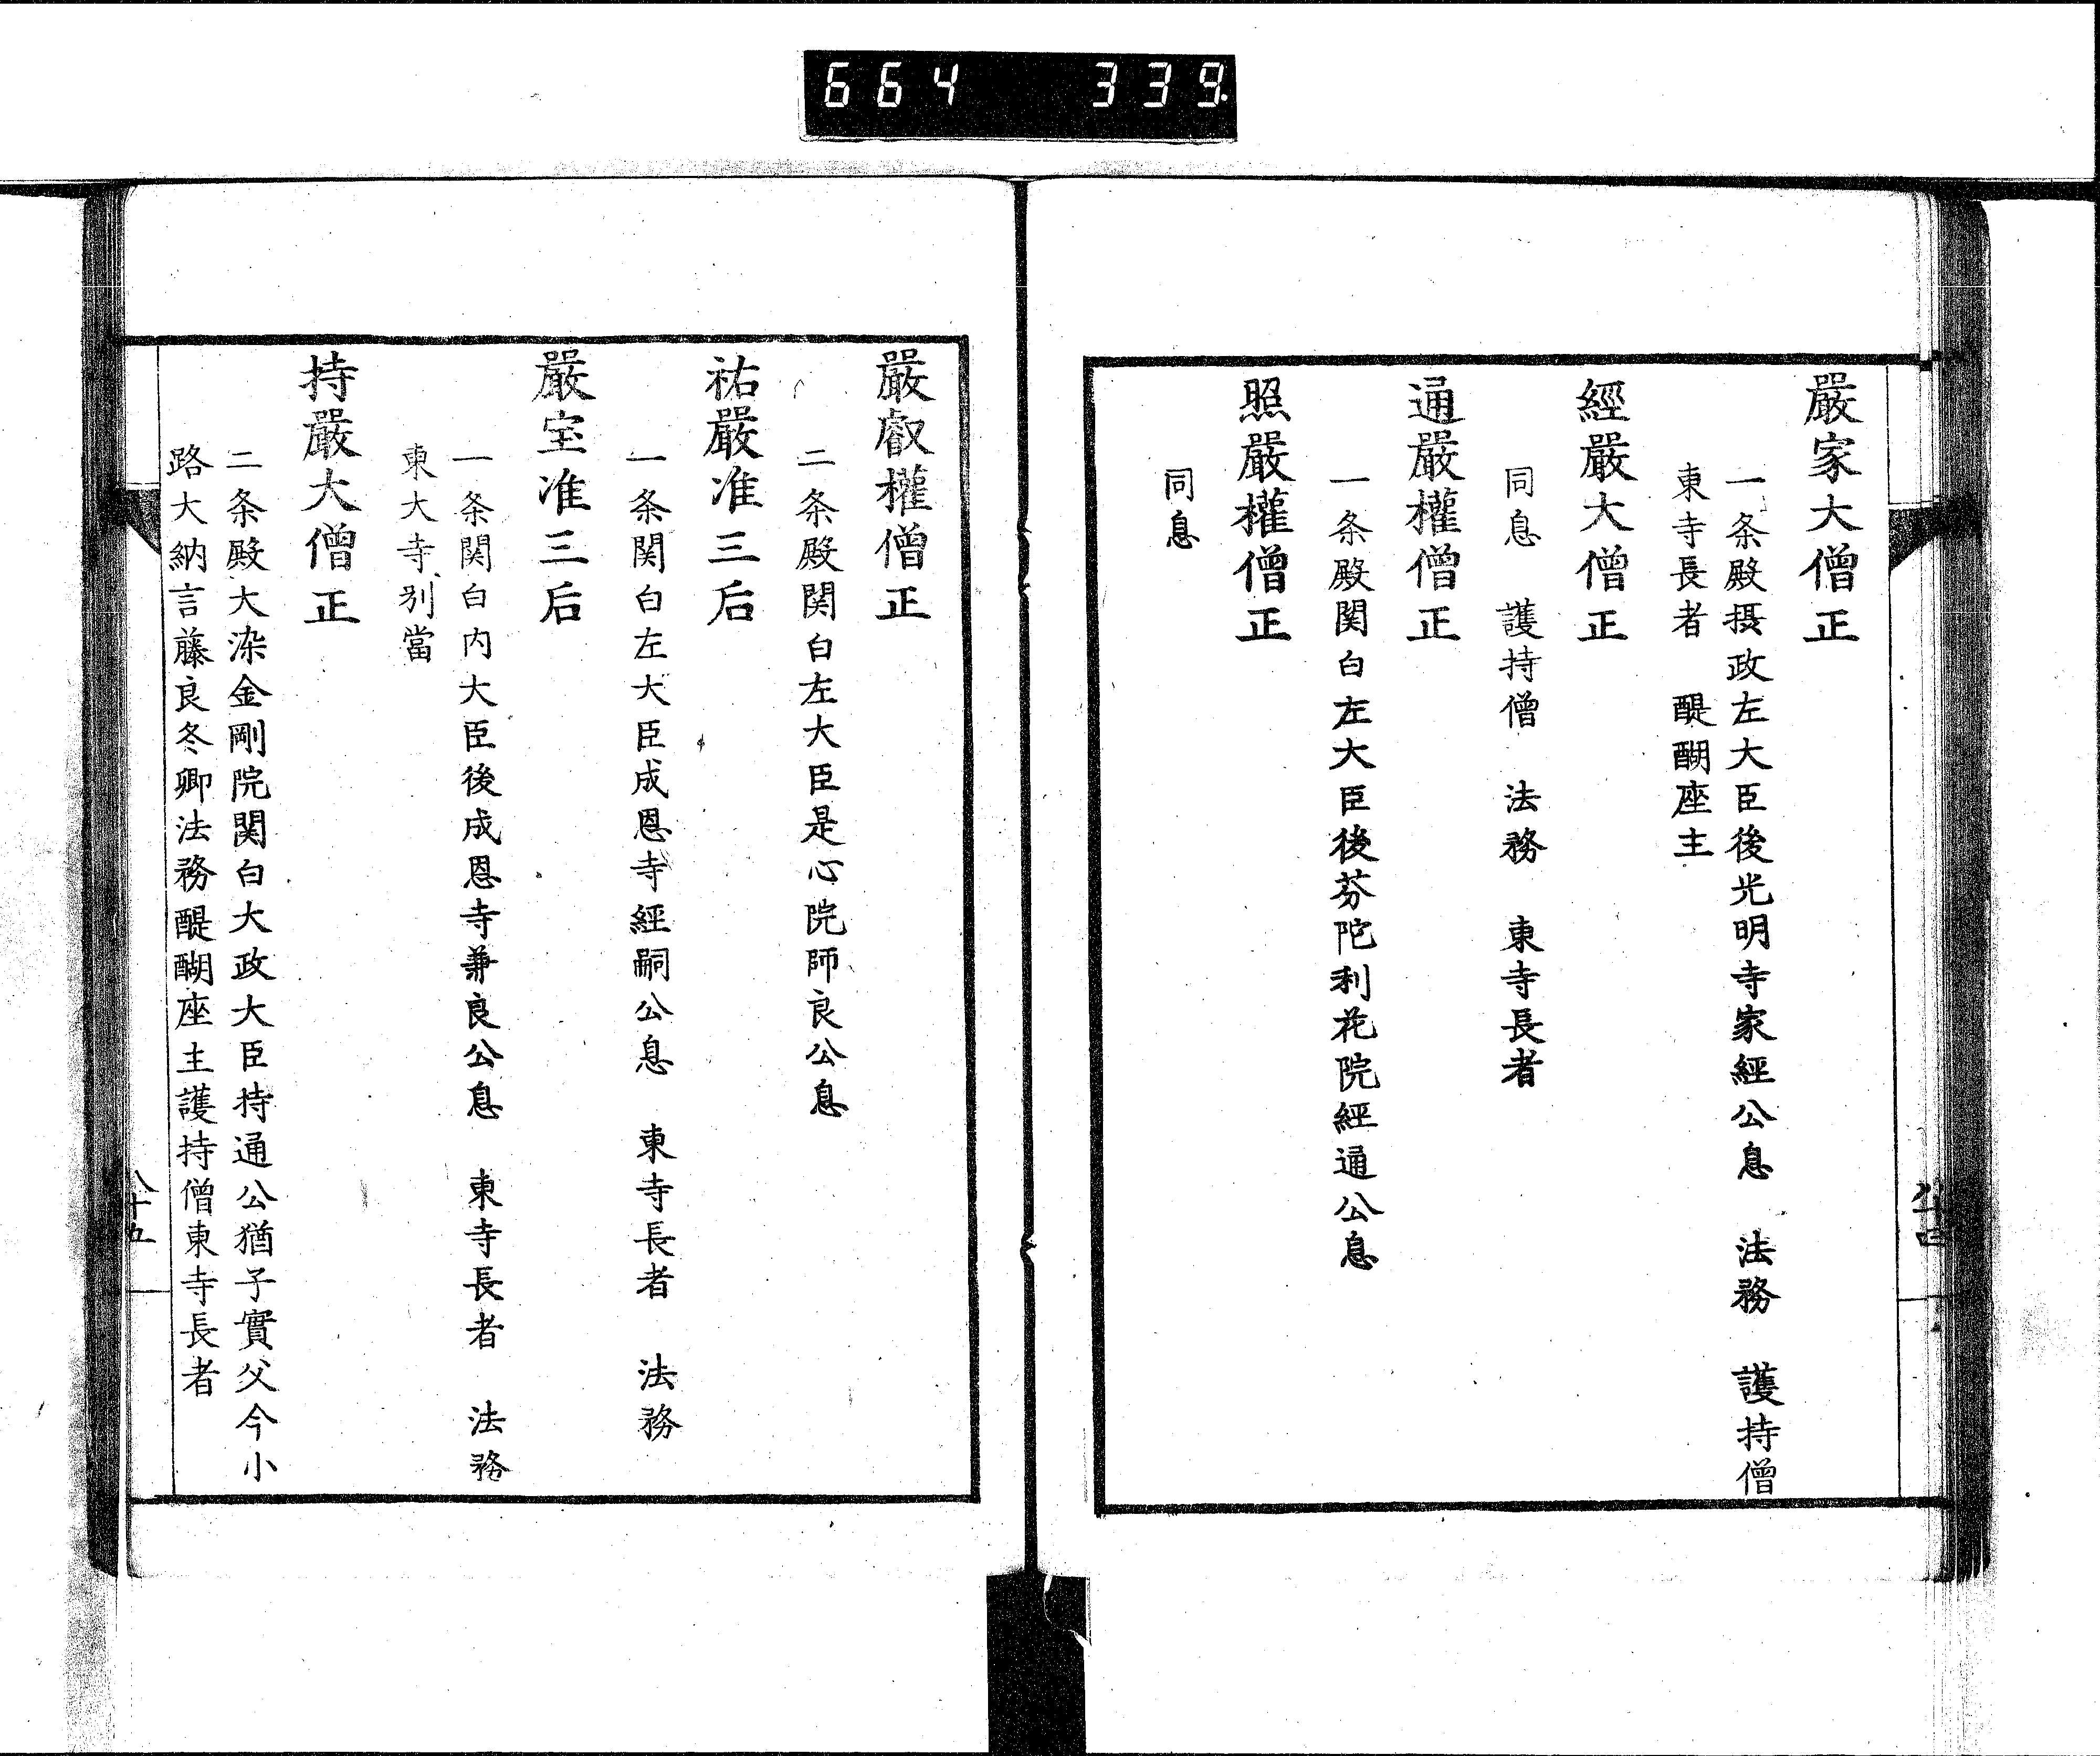 664 339.
嚴家大僧正
一条殿摂政左大臣後光明寺家經公息 法務 護持僧
東寺長者 醍醐座主
經嚴大僧正
同息 護持僧 法務 東寺長者
通嚴權僧正
一条殿関白左大臣後芬陀利花院經通公息
照嚴權僧正
同息
嚴叡權僧正
二条殿関白左大臣是心院師良公息
祐嚴准三后
一条関白左大臣成恩寺經嗣公息 東寺長者 法務
嚴宝准三后
一条関白内大臣後成恩寺兼良公息 東寺長者 法務
東大寺別當
持嚴大僧正
二条殿大染金剛院関白大政大臣持通公猶子實父今小
路大納言藤良冬卿法務醍醐座主護持僧東寺長者
八十五